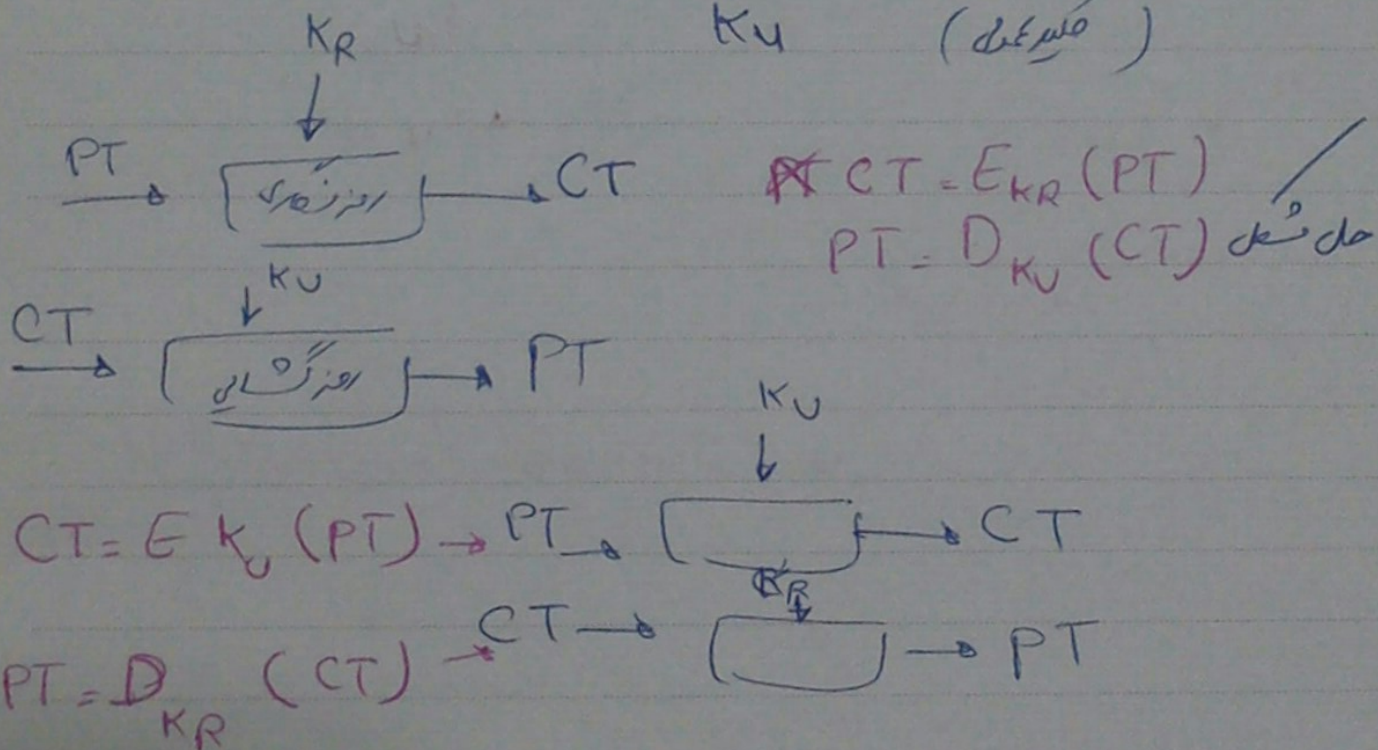 KR Ku
PT رمزنگاری CT
CT = EKR (PT)
PT = DKU (CT)
KU
CT رمزگشایی PT
KU
CT = E KU (PT) → PT → CT
KR
PT = D KR (CT) → CT → PT